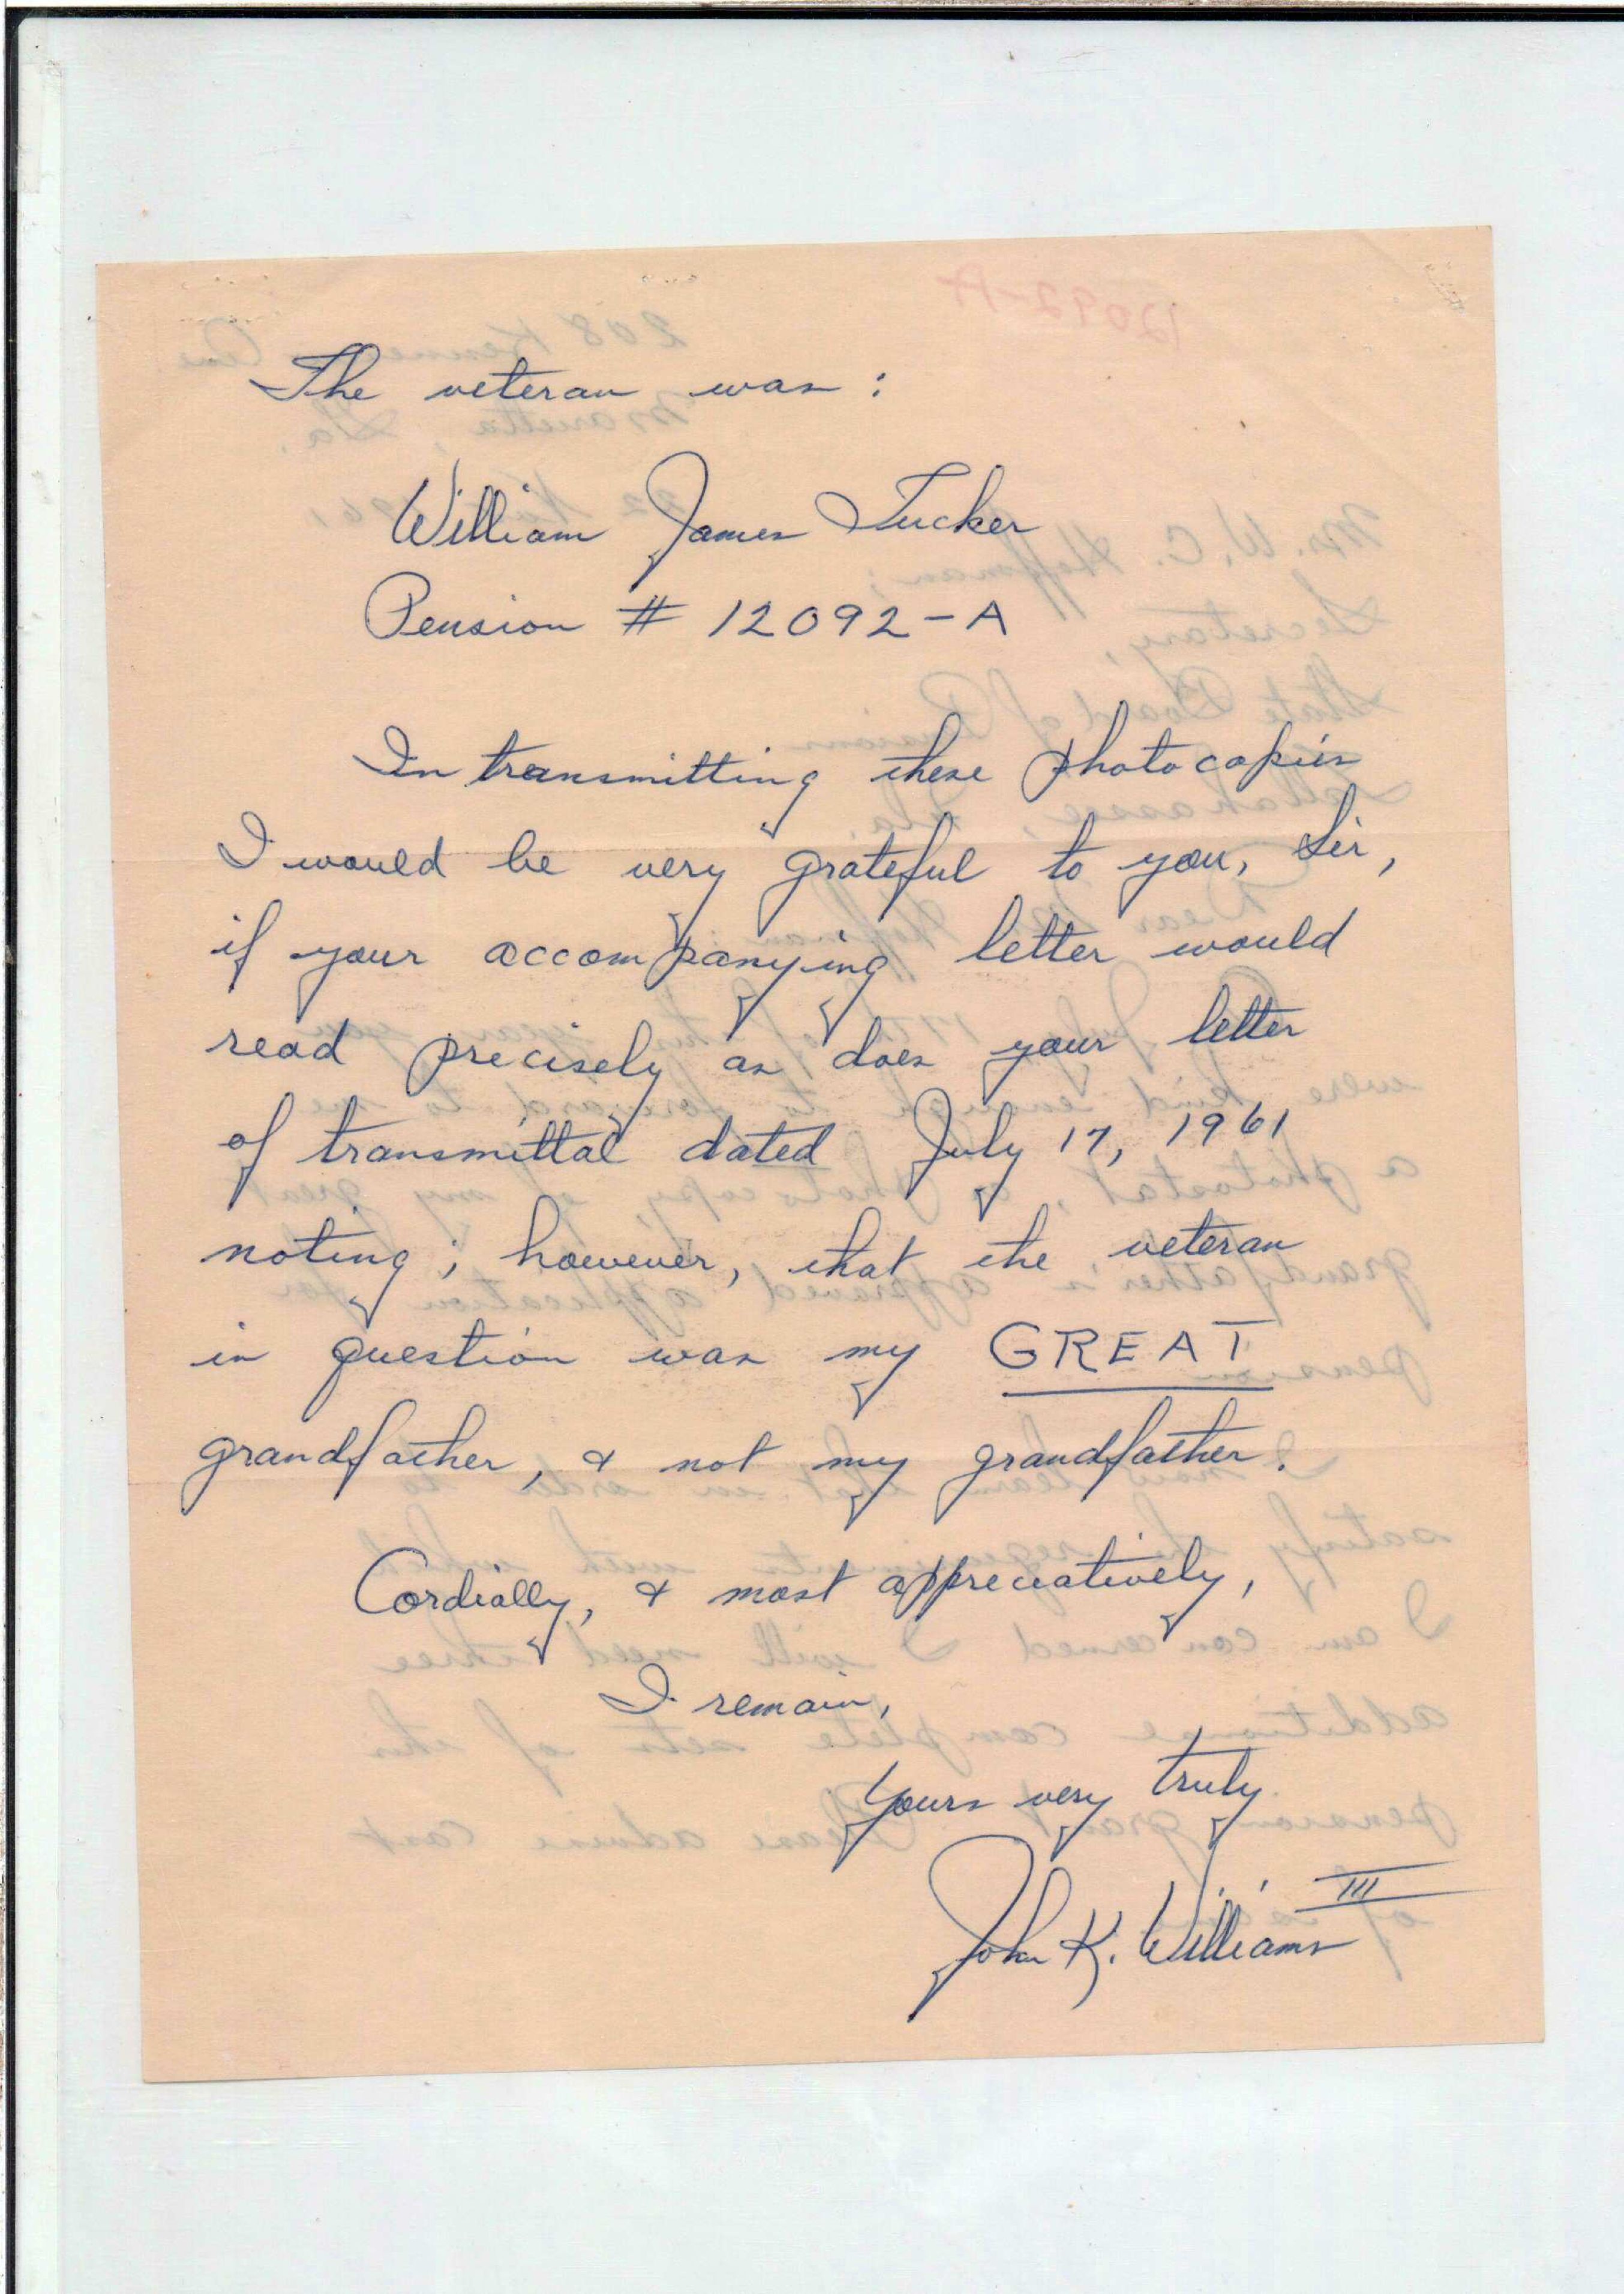 The veteran was:
William James Tucker
Pension # 12092-A
In transmitting these photocopies
I would be very grateful to you, Sir,
if your accompanying letter would
read precisely as does your letter
of transmittal dated July 17, 1961
noting; however, that the veteran
in question was my GREAT
grandfather, & not my grandfather.
Cordially, & most appreciatively,
I remain,
Yours very truly
John K. Williams III